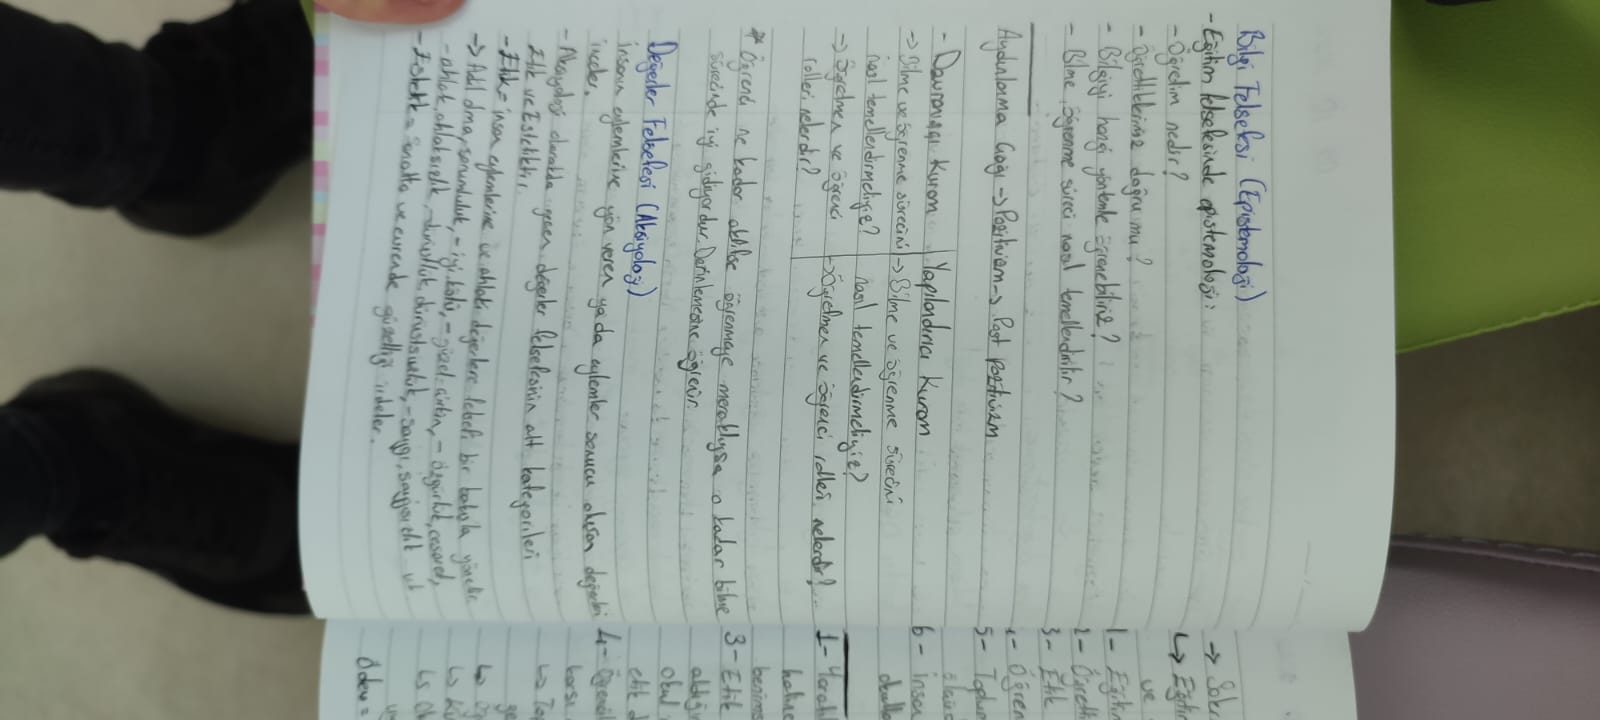 Bilgi Felsefesi (Epistemoloji)
- Eğitim felsefesinde epistemoloji:
- Öğretim nedir?
- Öğrettiklerimiz doğru mu?
- Bilgiyi hangi yöntemle öğrenebiliriz?
- Bilme, öğrenme süreci nasıl temellendirilir?
Aydınlanma Çağı → Pozitivizm → Post pozitivizm
- Davranışçı Kuram
→ Bilme ve öğrenme sürecini
nasıl temellendirmeliyiz?
→ Öğretmen ve öğrenci
rolleri nelerdir?
Yapılandırıcı Kuram
→ Bilme ve öğrenme sürecini
nasıl temellendirmeliyiz?
→ Öğretmen ve öğrenci rolleri nelerdir?
* Öğrenci ne kadar aktifse öğrenmeye meraklıysa o kadar bilme
sürecinde iyi gidiyordur. Derinlemesine öğrenir.
Değerler Felsefesi (Aksiyoloji)
İnsanın eylemlerine yön veren ya da eylemler sonucu oluşan değerleri
inceler.
- Aksiyoloji olarakda geçen değerler felsefesinin alt kategorileri
Etik ve Estetiktir.
- Etik = insan eylemlerine ve ahlaki değerlere felsefi bir bakışla yönelir.
→ Adil olma, sorumluluk, - iyi, kötü, - güzel - çirkin, - özgürlük, cesaret,
- ahlak, ahlaksızlık, - dürüstlük, dürüstsüzlük, - saygı, saygısızlık vb
- Estetik = sanatta ve evrende güzelliği irdeler.
→
↳ Eğitim
1 - Eğitim
ve
2 -
3 - Etik
4 - Öğren
5 - Toplum
6 - İnsan
okulla
1 -
haline
3 - Etik
aldığı
okul
etik
4 -
↳
Ödev =